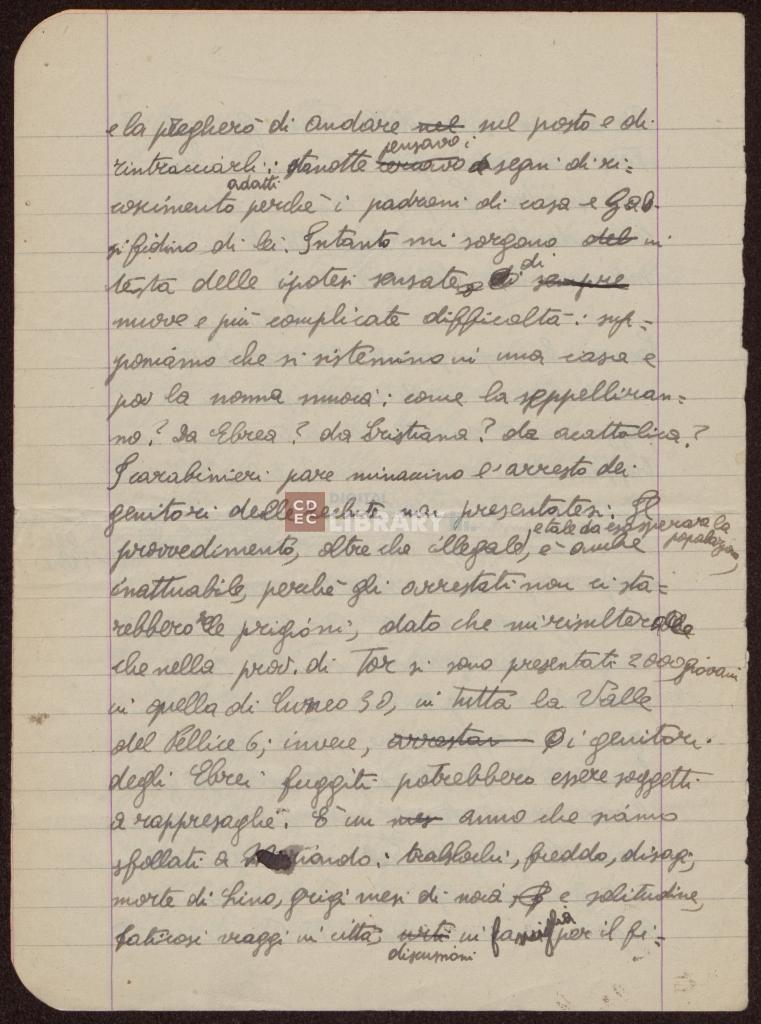 e la pregherò di andare nel sul posto e di
rintracciarli: stanotte pensavo i segni di ri=
adatti
coscimento perchè i padroni di casa e Gab-
si fidino di lei. Intanto mi sorgono del in
testa delle ipotesi sensate e di di sempre
nuove e più complicate difficoltà: sup=
poniamo che si sistemino in una casa e
poi la nonna muoia: come la seppelliran=
no? Da Ebrea? da Cristiana? da acattolica?
I carabinieri pare minaccino l'arresto dei
genitori delle reclute non presentatesi. Il
, e tale da esasperare la popolazione,
provvedimento, oltre che illegale, è anche
inattuabile, perchè gli arrestati non ci sta=
rebbero nelle prigioni, dato che mi risulterebbe
che nella prov. di Tor si sono presentati 2000 giovani
in quella di Cuneo 30, in tutta la Valle
del Pellice 6; invece, arrestan i genitori
degli Ebrei fuggiti potrebbero essere soggetti
a rappresaglie. È un mes anno che siamo
sfollati a : traslochi, freddo, disagi,
morte di Lino, grigi mesi di noia e solitudine,
faticosi viaggi in città, urti in famiglia per il fi=
discussioni
CDEC DIGITAL LIBRARY